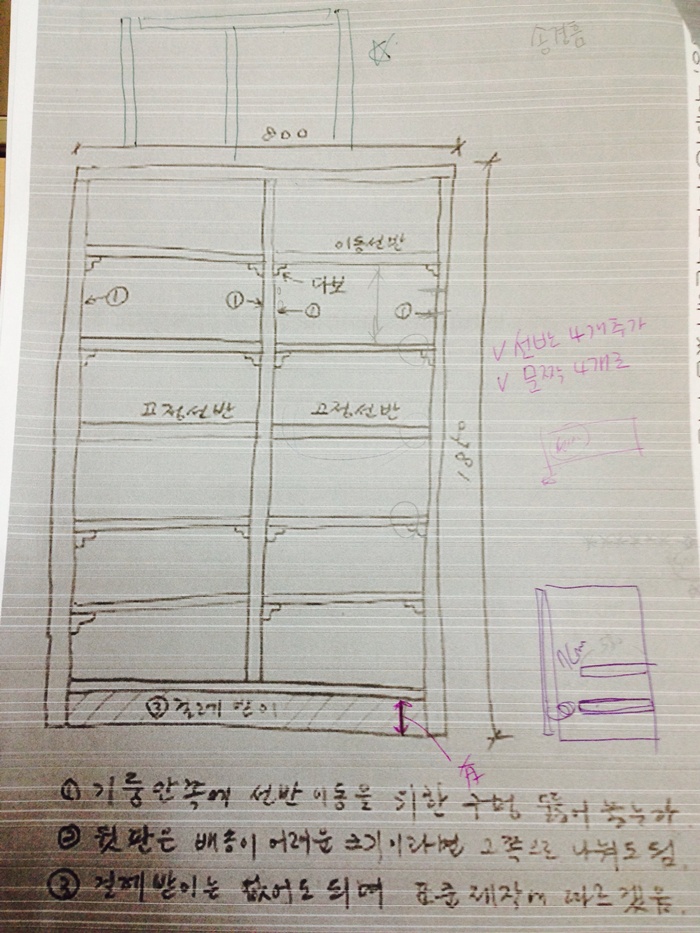 800
이동선반
다보
① ① ① ①
√ 선반 4개추가
√ 문짝 4개로
고정선반 고정선반
1870
③ 걸레받이
① 기둥 안쪽에 선반 이동을 위한 구멍 뚫어
② 뒷판은 배송이 어려운 크기이라면 2쪽으로 나눠도 됨.
③ 걸레받이는 없어도 되며 표준제작에 따르겠음.